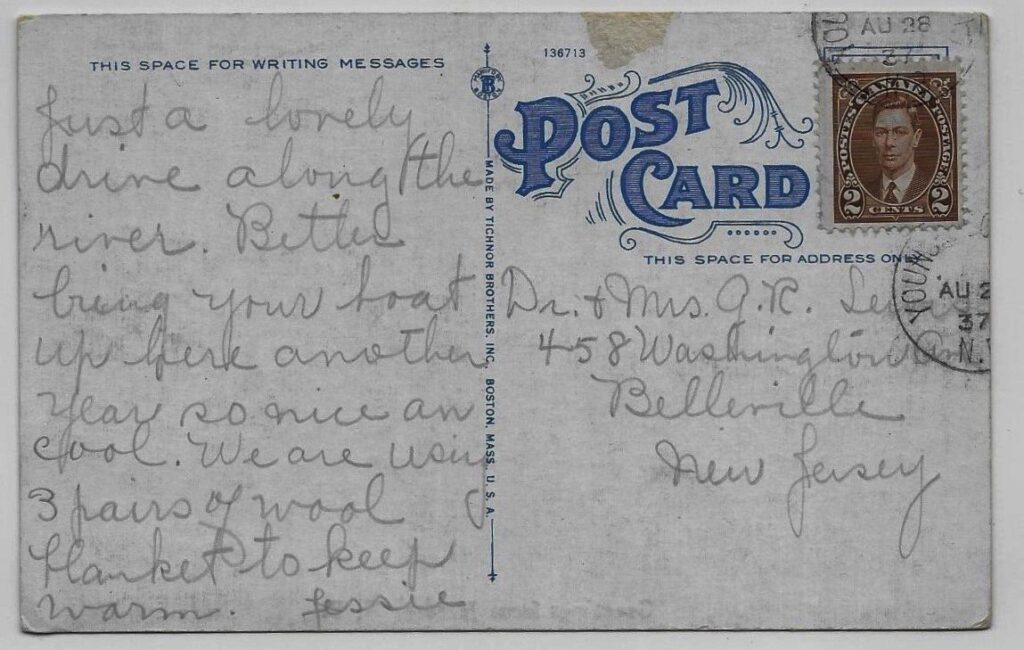 THIS SPACE FOR WRITING MESSAGES
Just a lovely
drive along the
river. Better
bring your boat
up here another
year so nice an
cool. We are using
3 pairs of wool
blanket to keep
warm. Jessie
MADE BY TICHNOR BROTHERS, INC., BOSTON, MASS. U.S.A.
B
136713
POST
CARD
THIS SPACE FOR ADDRESS ONLY
Dr. + Mrs. G. R.
458 Washington
Belleville
New Jersey
AU 28
37
POSTES CANADA POSTAGE
2 CENTS 2
YOUNG
AU 2
37
N.Y